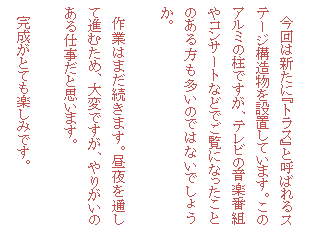 今回は新たに『トラス』と呼ばれるス
テージ構造物を設置しています。この
アルミの柱ですが、テレビの音楽番組
やコンサートなどでご覧になったこと
のある方も多いのではないでしょう
か。
作業はまだ続きます。昼夜を通し
て進むため、大変ですが、やりがいの
ある仕事だと思います。
完成がとても楽しみです。